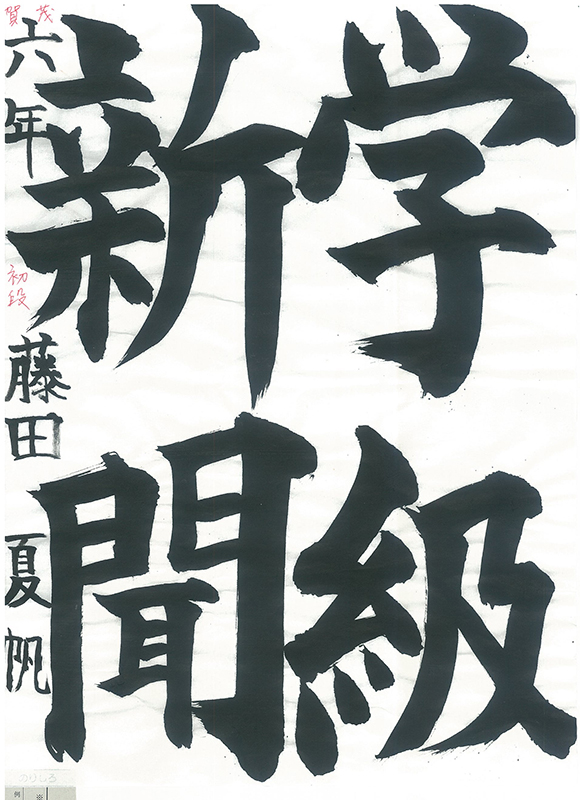 学級
新聞
六年 藤田 夏帆
茂賀
初段
のりしろ
例 ※